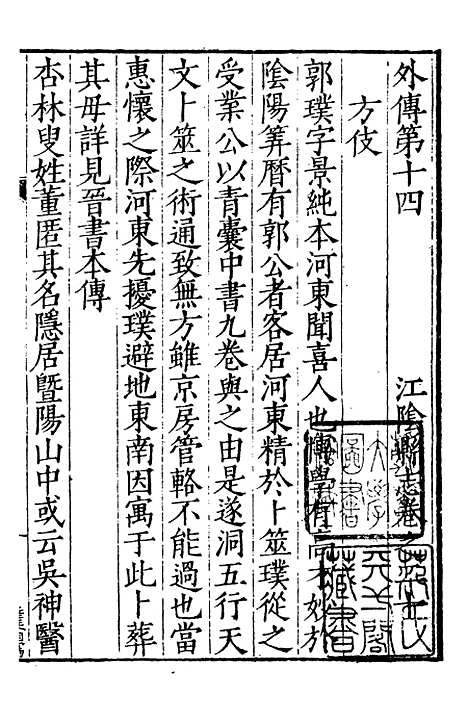 外傳第十四 江陰縣志卷之
方伎
郭璞字景純本河東聞喜人也博學有高才妙於
陰陽筭曆有郭公者客居河東精於卜筮璞從之
受業公以青囊中書九卷與之由是遂洞五行天
文卜筮之術通致無方雖京房管輅不能過也當
惠懷之際河東先擾璞避地東南因寓于此卜葬
其母詳見晉書本傳
杏林叟姓董匿其名隱居暨陽山中或云吳神醫